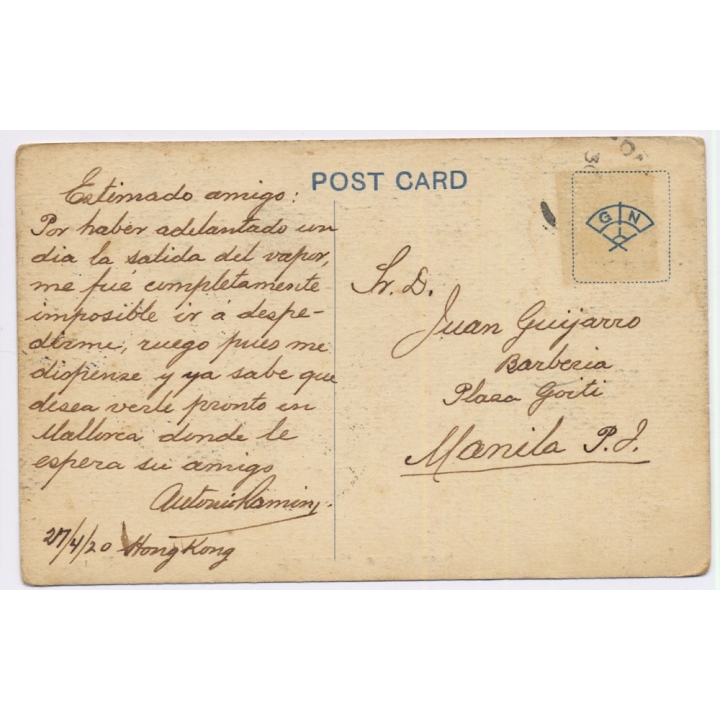 POST CARD
G N
Estimado amigo:
Por haber adelantado un
dia la salida del vapor,
me fué completamente
imposible ir á despe-
dirme, ruego pues me
dispense y ya sabe que
desea verle pronto en
Mallorca donde le
espera su amigo
Antonio
27/4/20 Hong Kong
Sr. D.
Juan Guijarro
Barberia
Plaza Goiti
Manila P.I.